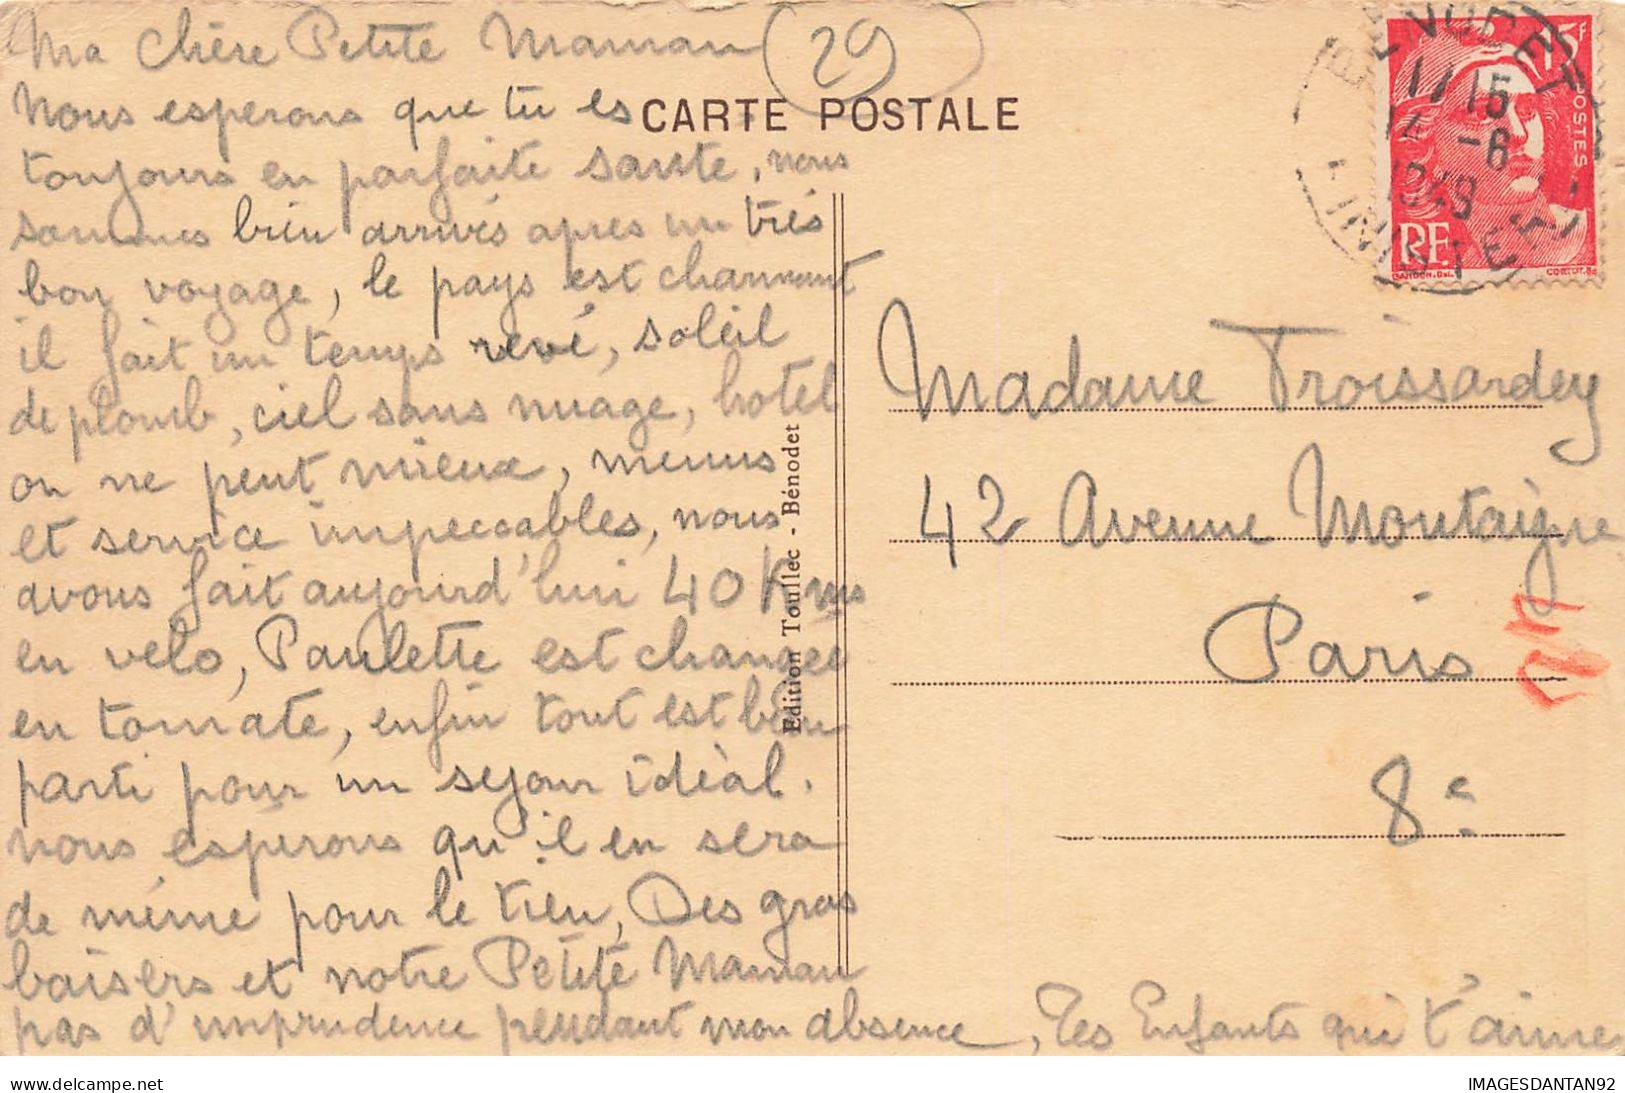 Ma chère Petite Maman
29
Nous esperons que tu es
CARTE POSTALE
toujours en parfaite sante, nous
sommes bien arrivés après un très
bon voyage, le pays est charmant
il fait un temps revé, soleil
de plomb, ciel sans nuage, hotel
on ne peut mieux, menus
et service impeccables, nous
avons fait aujourd'hui 40 Kms
en velo, Paulette est changée
en tomate, enfin tout est bien
parti pour un sejour idéal.
nous espérons qu'il en sera
de même pour le tien, Des gros
baisers et notre Petite Maman
pas d'imprudence pendant mon absence, Tes Enfants qui t'aiment
Edition Toullec - Bénodet
BENODET
17 15
14 -6
1949
FINISTERE
15F
POSTES
RF
GANDON. Del.
CORTOT. Sc
Madame Froissardey
42 Avenue Montaigne
Paris
8e
www.delcampe.net
IMAGESDANTAN92